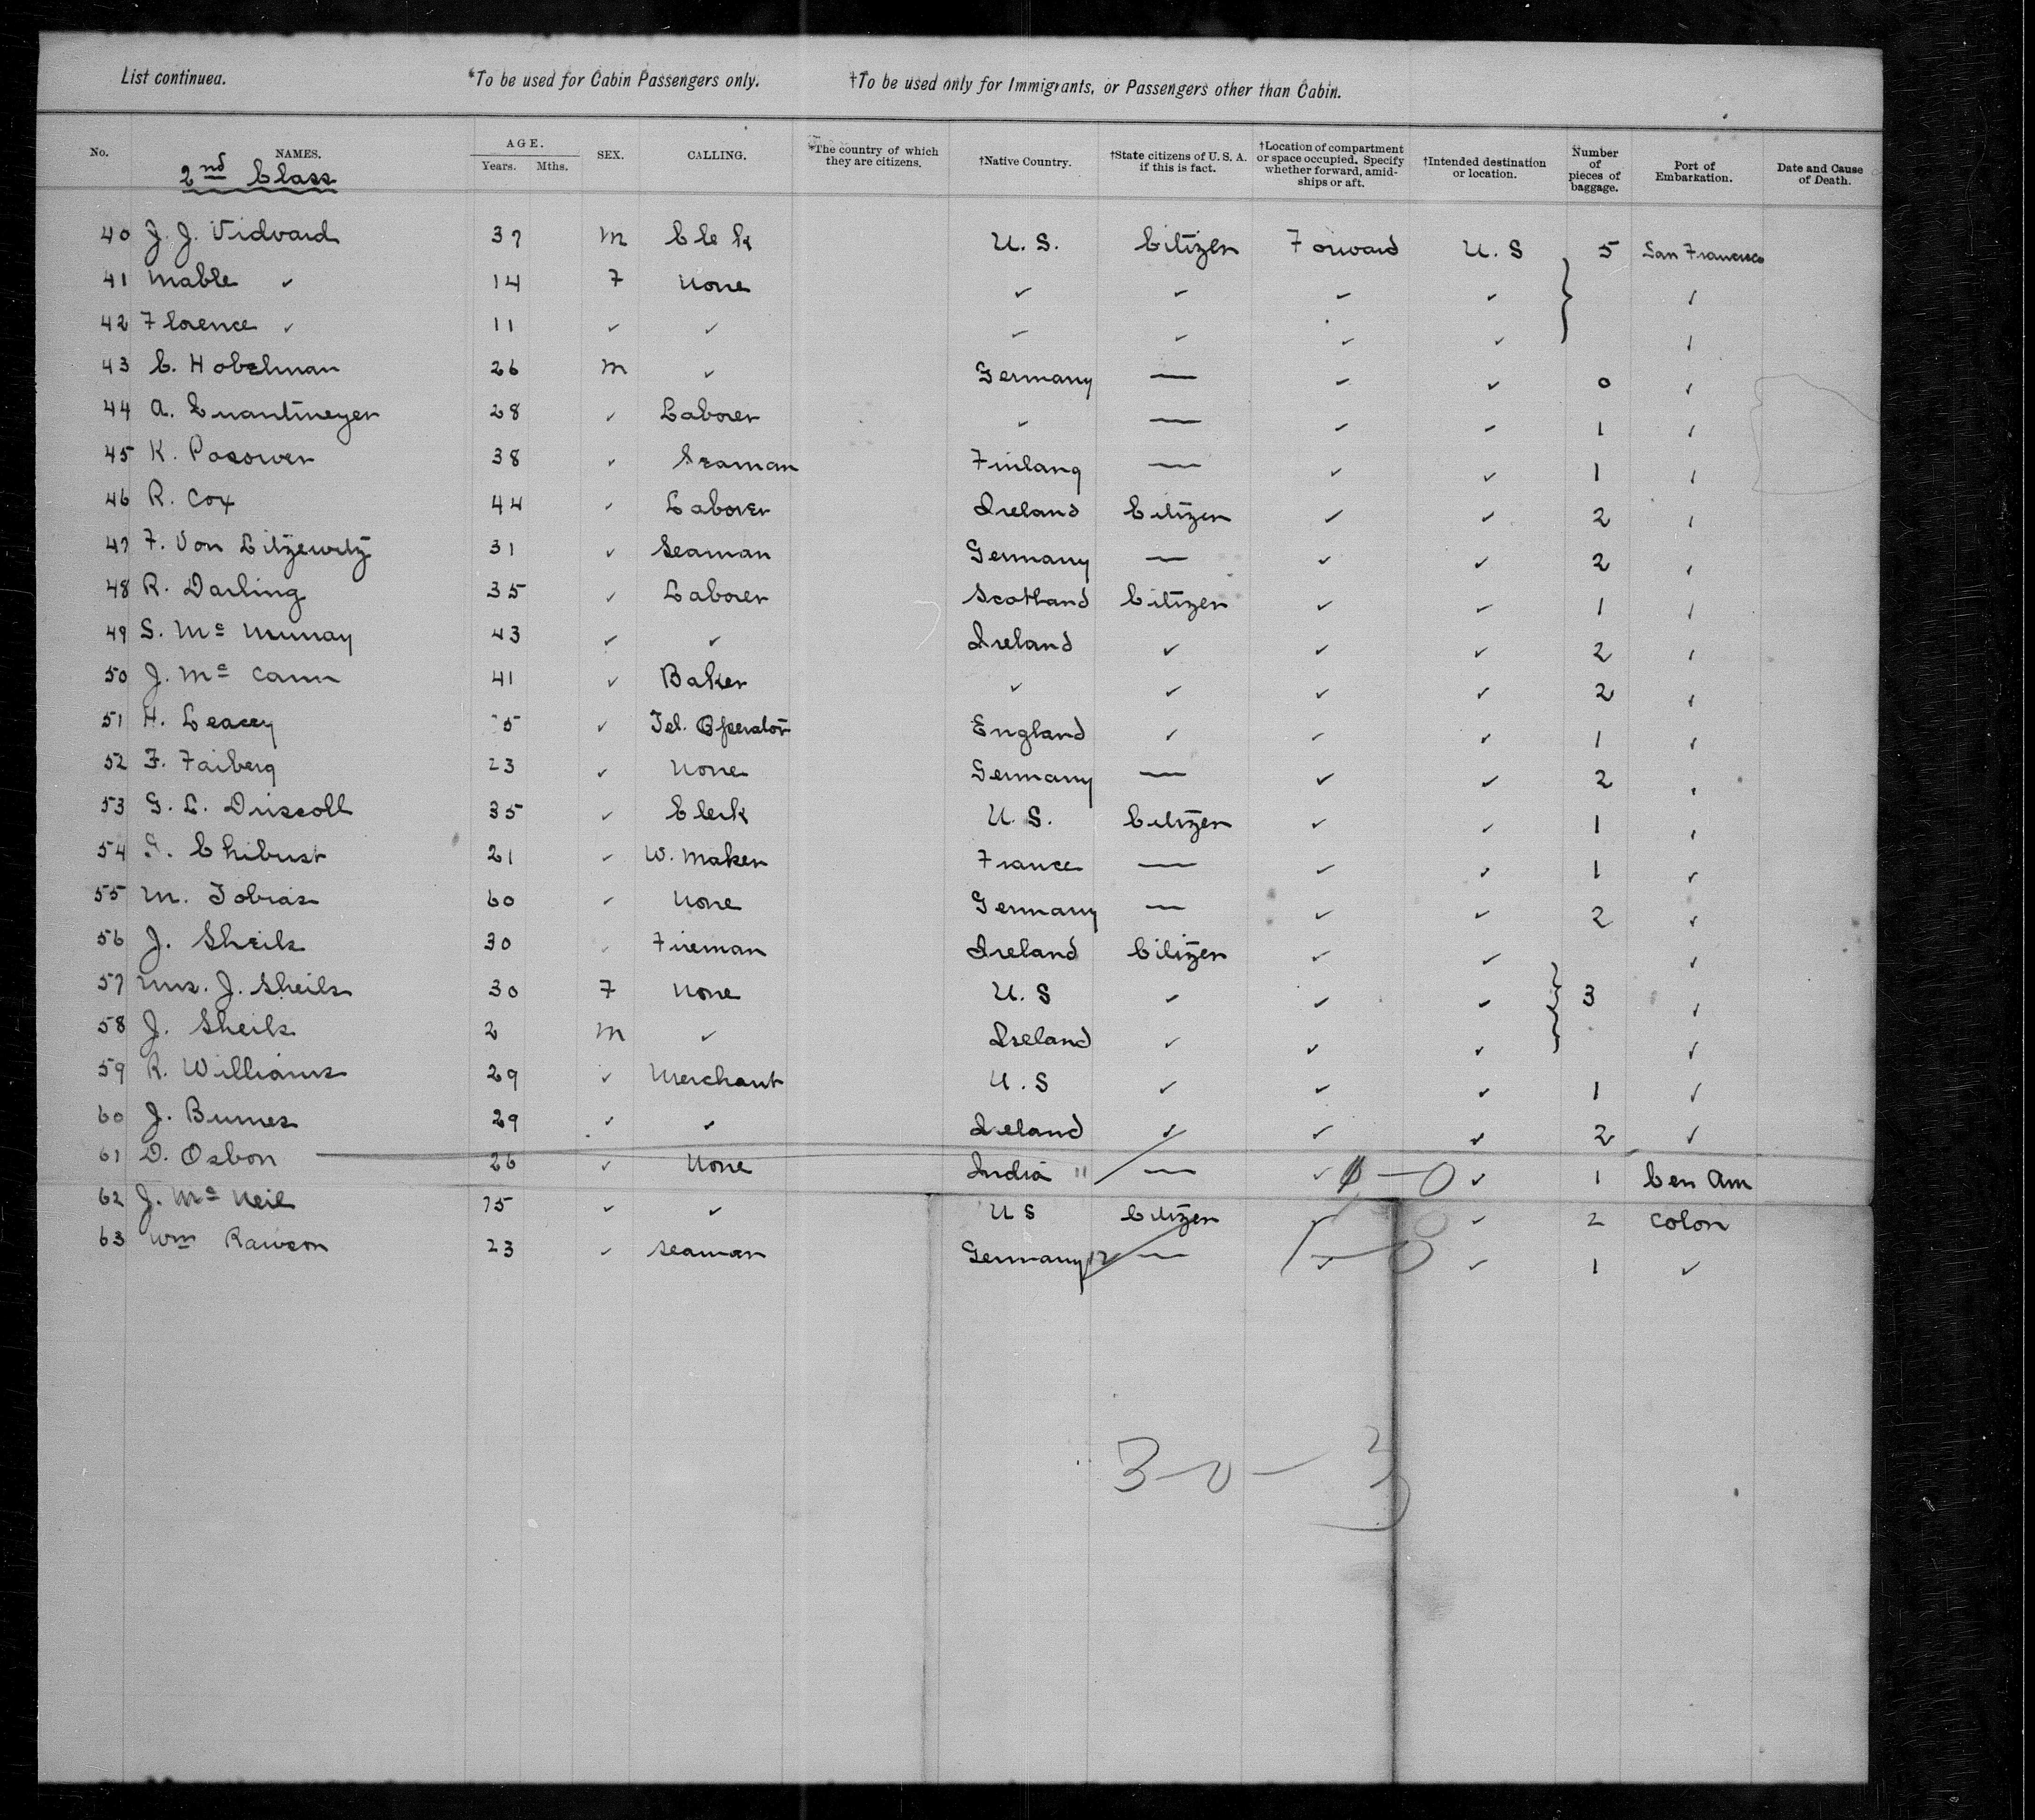 List continued. *To be used for Cabin Passengers only. †To be used only for Immigrants, or Passengers other than Cabin.
No. NAMES. AGE. Years. Mths. SEX. CALLING. *The country of which they are citizens. †Native Country. †State citizens of U. S. A. if this is fact. †Location of compartment or space occupied. Specify whether forward, amidships or aft. †Intended destination or location. Number of pieces of baggage. Port of Embarkation. Date and Cause of Death.
2nd Class
40 J. J. Vidvard 37 M Clerk U. S. Citizen Forward U. S 5 San Francisco
41 Mable ✓ 14 F None ✓ ✓ ✓ ✓ ✓
42 Florence ✓ 11 ✓ ✓ ✓ ✓ ✓ ✓ ✓
43 C. Hobelman 26 M ✓ Germany — ✓ ✓ 0 ✓
44 A. 28 ✓ Laborer ✓ — ✓ ✓ 1 ✓
45 K. Posower 38 ✓ Seaman Finland — ✓ ✓ 1 ✓
46 R. Cox 44 ✓ Laborer Ireland Citizen ✓ ✓ 2 ✓
47 F. Von Litzewitz 31 ✓ Seaman Germany — ✓ ✓ 2 ✓
48 R. Darling 35 ✓ Laborer Scotland Citizen ✓ ✓ 1 ✓
49 S. Mc Murray 43 ✓ ✓ Ireland ✓ ✓ ✓ 2 ✓
50 J. Mc Cann 41 ✓ Baker ✓ ✓ ✓ ✓ 2 ✓
51 H. Leacey 5 ✓ Tel. Operator England ✓ ✓ ✓ 1 ✓
52 F. Faiberg 23 ✓ None Germany — ✓ ✓ 2 ✓
53 G. L. Driscoll 35 ✓ Clerk U. S. Citizen ✓ ✓ 1 ✓
54 Chibust 21 ✓ W. Maker France — ✓ ✓ 1 ✓
55 M. Tobias 60 ✓ None Germany — ✓ ✓ 2 ✓
56 J. Sheils 30 ✓ Fireman Ireland Citizen ✓ ✓ ✓
57 Mrs. J. Sheils 30 F None U. S ✓ ✓ ✓ 3 ✓
58 J. Sheils 2 M ✓ Ireland ✓ ✓ ✓ ✓
59 R. Williams 29 ✓ Merchant U. S ✓ ✓ ✓ 1 ✓
60 J. Burnes 29 ✓ ✓ Ireland ✓ ✓ ✓ 2 ✓
61 D. Osbon 26 ✓ None India 11 — ✓ 1-0 ✓ 1 Cen Am
62 J. Mc Neil 75 ✓ ✓ U S Citizen ✓ ✓ 2 Colon
63 Wm Rawson 23 ✓ Seaman Germany 12 — ✓ ✓ 1 ✓
3-0-3